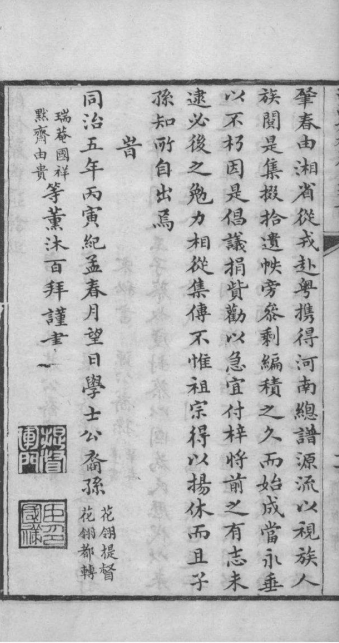 肇春由湘省從戎赴粵携得河南總譜源流以視族人
族閱是集掇拾遺帙旁參剩編積之久而始成當永垂
以不朽因是倡議捐貲勸以急宜付梓將前之有志未
逮必後之勉力相從集傳不惟祖宗得以揚休而且子
孫知所自出焉
旹
同治五年丙寅紀孟春月望日學士公裔孫
花翎提督
花翎都轉
瑞菴國祥
點齊由貴
等薰沐百拜謹書
提督
軍門